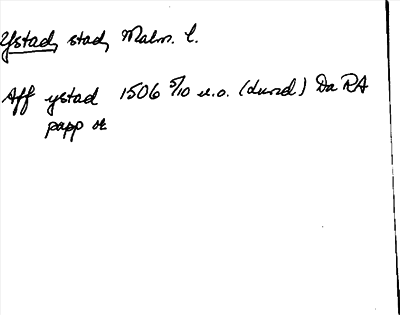 Ystad, stad, Malm. l.
Aff ystad 1506 5/10 u.o. (Lund) Da RA
papp or